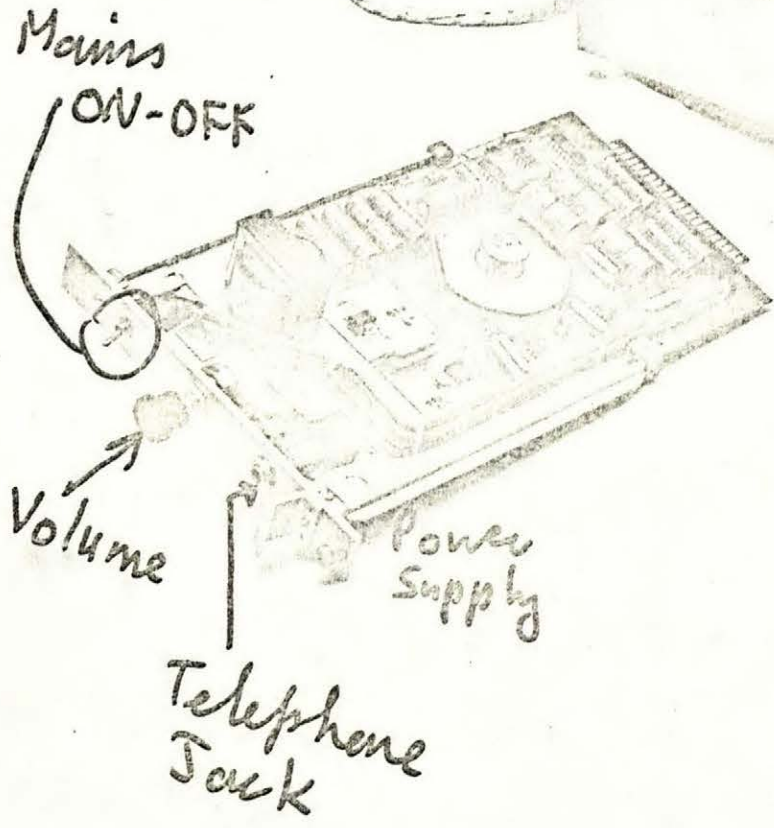 Mains
ON-OFF
Volume
Power
Supply
Telephone
Jack